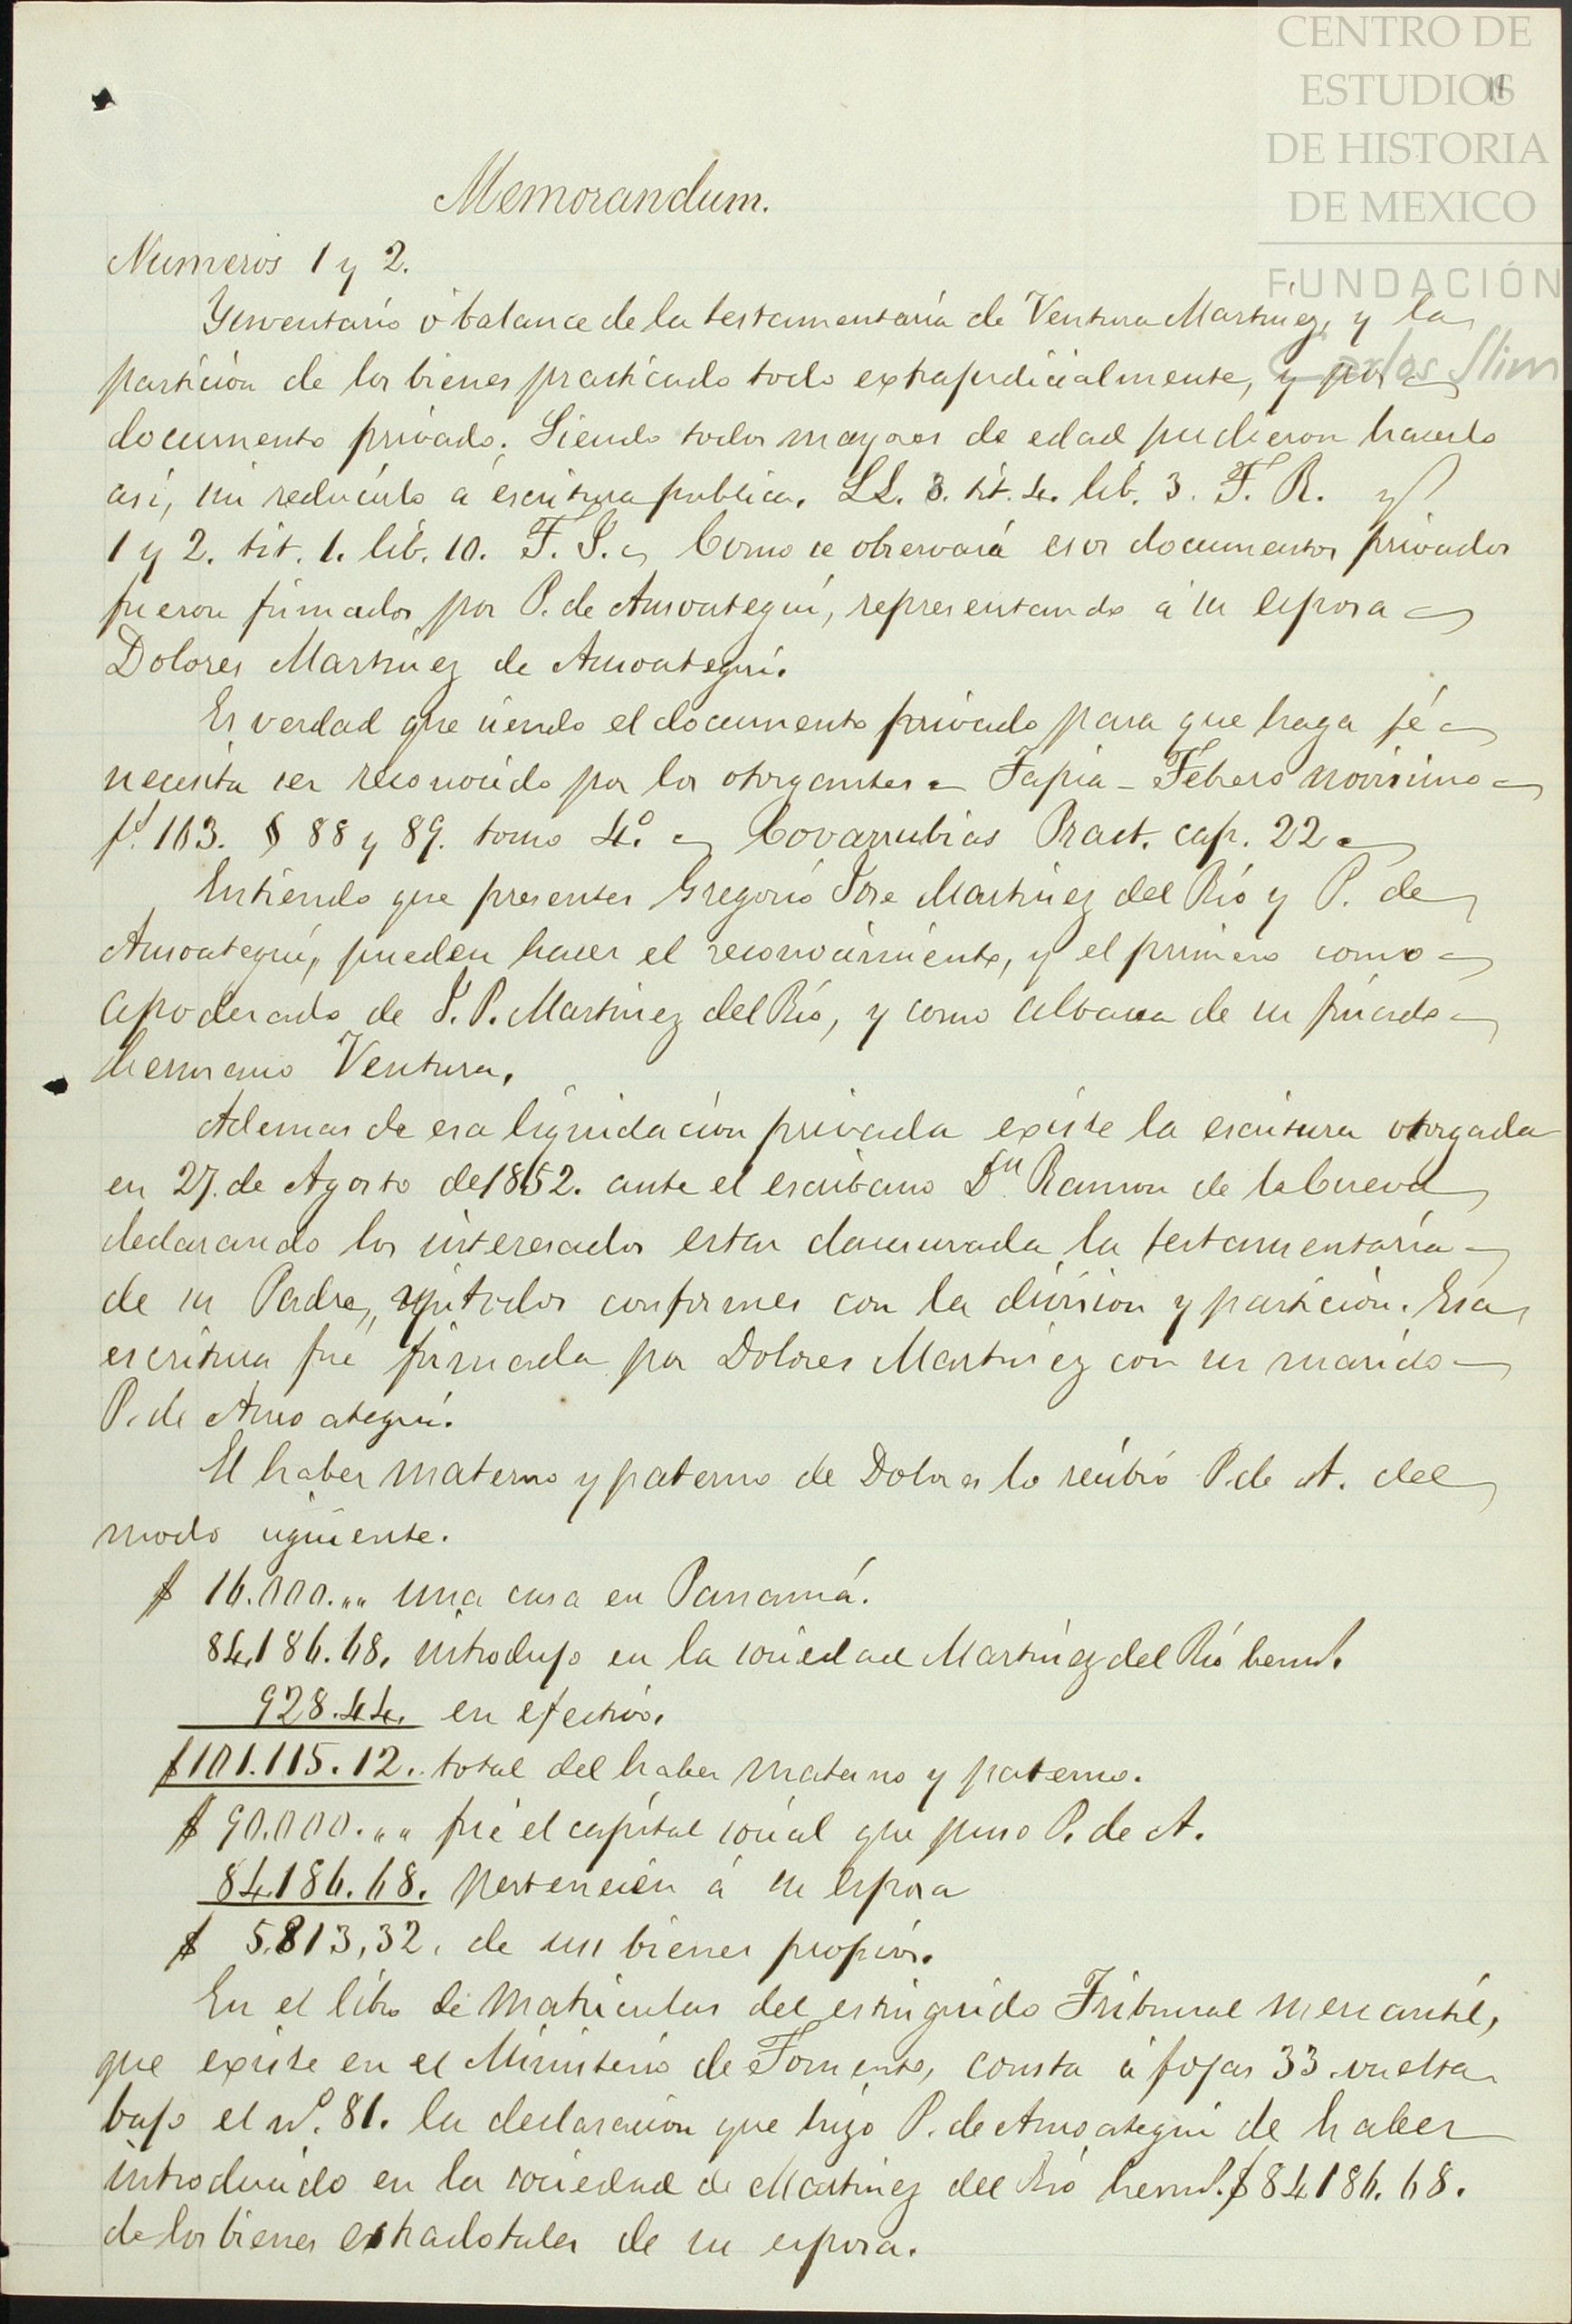 CENTRO DE
ESTUDIOS
DE HISTORIA
DE MEXICO
FUNDACIÓN
Carlos Slim
11
Memorandum.
Numeros 1 y 2.
Ynventario ó balance de la testamentaria de Ventura Martinez, y la
particion de los bienes practicado todo extrajudicialmente, y por
documento privado. Siendo todos mayores de edad pudieron hacerlo
asi, sin reducirlo á escritura publica. LL. 3. tit. 4. lib. 3. F. R. y
1 y 2. tit. 1. lib. 10. F. J. Como se observará esos documentos privados
fueron firmados por P. de Ansoategui, representando á su esposa
Dolores Martinez de Ansoategui.
Es verdad que siendo el documento privado para que haga fé
necesita ser reconocido por los otorgantes = Tapia - Febrero novisimo
fs. 103. § 88 y 89. tomo 4º Covarrubias Pract. cap. 22
Entiendo que presentes Gregorio Jose Martinez del Rio y P. de
Ansoategui, pueden hacer el reconocimiento, y el primero como
apoderado de J. P. Martinez del Rio, y como albacea de su finado
hermano Ventura.
Ademas de esa liquidacion privada existe la escritura otorgada
en 27. de Agosto de 1852. ante el escribano Dn Ramon de la Cueva
declarando los interesados estar clausurada la testamentaria
de su Padre, y todos conformes con la division y particion. Esa
escritura fué firmada por Dolores Martinez con su marido
P. de Ansoategui.
El haber materno y paterno de Dolores lo recibió P. de A. del
modo siguiente.
$ 16.000.,, una casa en Panamá.
84,186.68. introdujo en la sociedad Martinez del Rio herms.
928.44. en efectivo.
$101.115.12. total del haber materno y paterno.
$ 90.000.,, fué el capital social que puso P. de A.
84186.68. pertenecien á su esposa
$ 5.813,32. de sus bienes propios.
En el libro de matriculas del estinguido Tribunal mercantil,
que existe en el Ministerio de Fomento, consta á fojas 33 vuelta
bajo el nº. 81. la declaracion que hizo P. de Ansoategui de haber
introducido en la sociedad de Martinez del Rio herms. $84186.68.
de los bienes extradotales de su esposa.